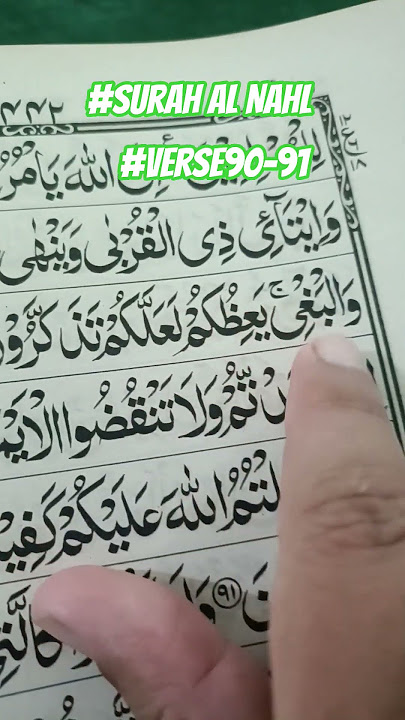 #SURAH AL NAHL
#VERSE90-91
۴۴۲
اِنَّ اللّٰهَ يَاْمُرُ
وَاِيْتَآئِ ذِي الْقُرْبٰى وَيَنْهٰى
وَالْبَغْيِ ۚ يَعِظُكُمْ لَعَلَّكُمْ تَذَكَّرُوْ
تُّمْ وَلَا تَنْقُضُوا الْاَيْمَ
لْتُمُ اللّٰهَ عَلَيْكُمْ كَفِيْ
نَ ۹۱ كَالَّتِيْ